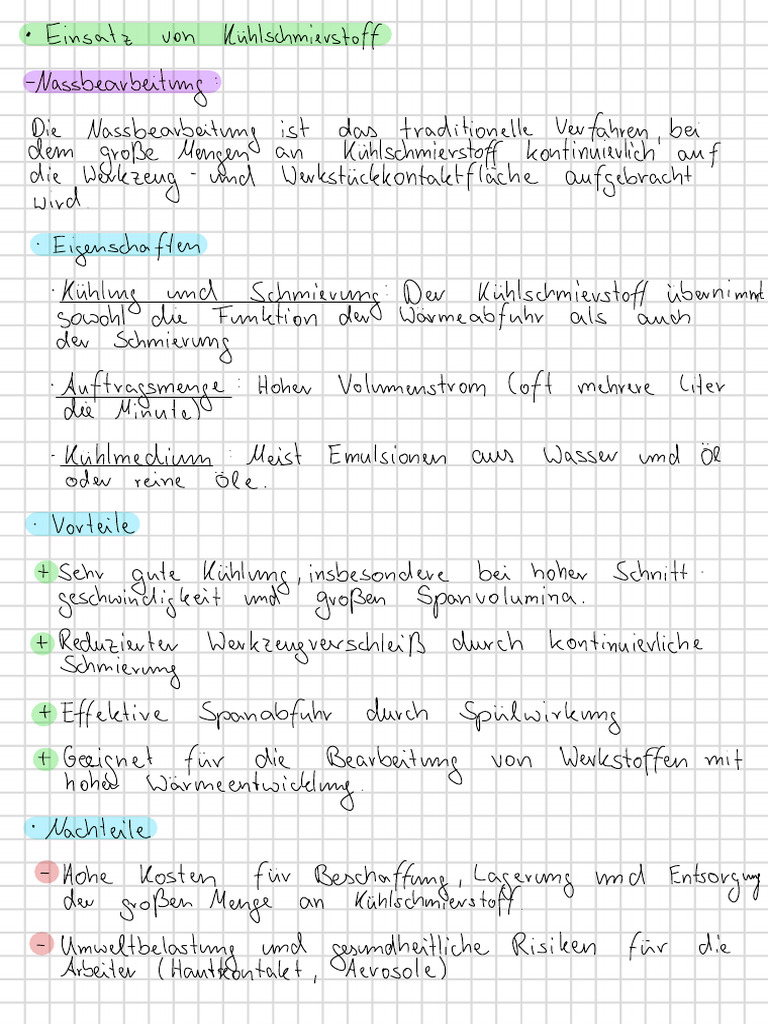 · Einsatz von Kühlschmierstoff
- Nassbearbeitung:
Die Nassbearbeitung ist das traditionelle Verfahren, bei
dem große Mengen an Kühlschmierstoff kontinuierlich auf
die Werkzeug- und Werkstückkontaktfläche aufgebracht
wird.
· Eigenschaften
· Kühlung und Schmierung: Der Kühlschmierstoff übernimmt
sowohl die Funktion der Wärmeabfuhr als auch
der Schmierung
· Auftragsmenge: Hoher Volumenstrom (oft mehrere Liter
die Minute)
· Kühlmedium: Meist Emulsionen aus Wasser und Öl
oder reine Öle.
· Vorteile
+ Sehr gute Kühlung, insbesondere bei hoher Schnitt-
geschwindigkeit und großen Spanvolumina.
+ Reduzierter Werkzeugverschleiß durch kontinuierliche
Schmierung
+ Effektive Spanabfuhr durch Spülwirkung
+ Geeignet für die Bearbeitung von Werkstoffen mit
hoher Wärmeentwicklung.
· Nachteile
- Hohe Kosten für Beschaffung, Lagerung und Entsorgung
der großen Menge an Kühlschmierstoff
- Umweltbelastung und gesundheitliche Risiken für die
Arbeiter (Hautkontakt, Aerosole)